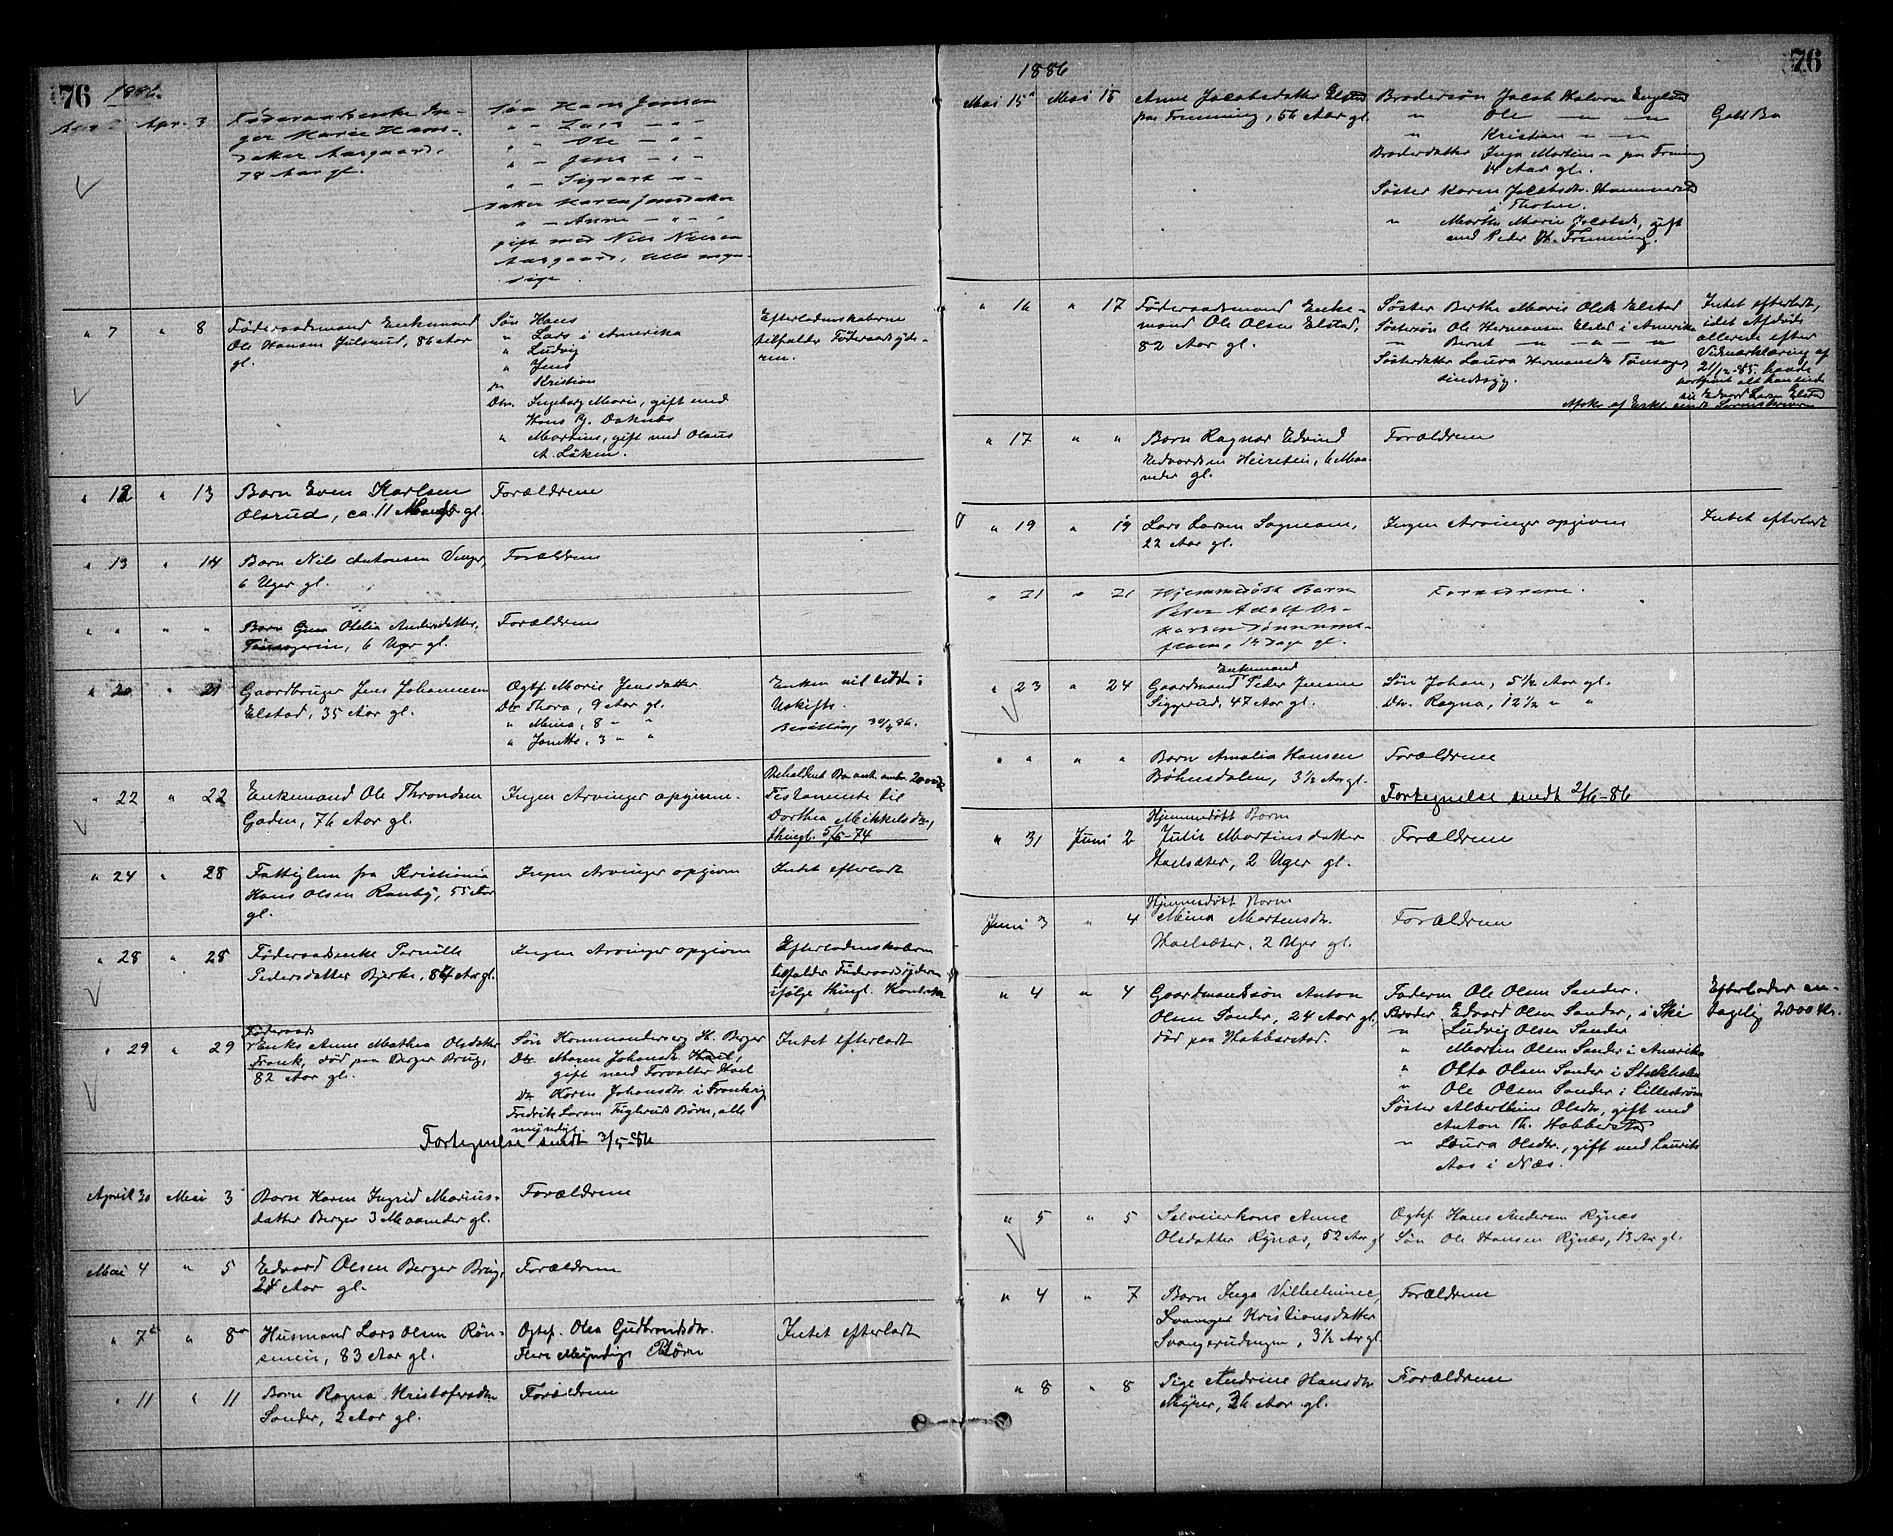 76 1886.
Apr. 2 Apr. 3 Føderaadsenke In-
ger Marie Hans-
datter Aargaard,
78 Aar gl.
Søn Hans Jensen
" - Lars - " -
" - Ole - " -
" - Jens - " -
" - Sigvart - " -
Datter Karen Jensdatter
" - Anne - " - "
gift med Nils Nilsen
Aargaard, Alle myn-
dige.
" 7 " 8 Føderaadsmand Enkemand
Ole Hansen Julsrud, 86 Aar
gl.
Søn Hans
" Lars i Amerika
" Ludvig
" Jens
Kristian
Dtr. Ingeborg Marie, gift med
Hans
" Martine, gift med Olaus
A. Løken.
Efterladenskaberne
tilfalder Føderaadsyde-
ren.
" 12 " 13 Barn Even Karlsen
Olsrud, ca. 11 gl.
Forældrene
" 13 " 14 Barn Nils Antonsen
6 Uger gl.
Forældrene
" " " " Barn Otelia Andersdatter,
6 Uger gl.
Forældrene
" 20 " 21 Gaardbruger Jens Johannesen
Elstad, 35 Aar gl.
Ogtf. Marie Jensdatter
Dtr Thora, 9 Aar gl.
" Mina, 8 " "
" Janette, 3 " "
Enken vil sidde i
Uskifte.
Bevilling 30/4 86.
" 22 " 22 Enkemand Ole Throndsen
Gaden, 76 Aar gl.
Ingen Arvinger opgivne.
Beholdent Bo ant. omtr. 2000 Kr
Testamente til
Dorthea Mikkelsdtr,
thingl. 5/5-74
" 24 " 28 Fattiglem fra Kristiania
Hans Olsen Ranby, 55 Aar
gl.
Ingen Arvinger opgivne
Intet efterladt
" 28 " 28 Føderaadsenke Pernille
Pedersdatter Bjerke, 84 Aar gl.
Ingen Arvinger opgivne
Efterladenskaberne
tilfalder Føderaadsyderen
ifølge thingl. Kontrakt
" 29 " 29 Føderaads
Enke Anne Mathea Olsdatter
Frank, død paa Berger Brug,
82 Aar gl.
Søn H. Berger
Dtr. Maren Johansdtr. Hael,
gift med Forvalter Hael
Dtr. Karen Johansdtr i Frankrig
Fredrik Larsen Fuglerud Børn, alle
myndige.
Intet efterladt
Fortegnelse sendt 3/5-86
April 30 Mai 3 Barn Karen Ingrid Marius-
datter Berger 3 Maaneder gl.
Forældrene
Mai 4 " 5 Edvard Olsen Berger Brug,
24 Aar gl.
Forældrene
" 7de " 8de Husmand Lars Olsen Røn-
smein, 83 Aar gl.
Ogtef. Olea Gudbrandsdtr.
Flere Myndige Børn
Intet efterladt
" 11 " 11 Barn Ragna Kristofersdtr
Sander, 2 Aar gl.
Forældrene
1886 76
Mai 15de Mai 15 Anne Jacobsdatter Elstad
paa Frenning, 56 Aar gl.
Brodersøn Jacob Halvorsen Englund
" Ole - " -
" Kristian - " -
Broderdatter Inga Martine - paa Frenning
14 Aar gl.
Søster Karen Jacobsdtr. Hammerstad
i Thoten.
" Marthe Marie Jacobsdtr, gift
med Peder H. Frenning.
Galt Bo
" 16 " 17 Føderaadsmand Enke-
mand Ole Olsen Elstad,
82 Aar gl.
Søster Berthe Marie Olsdtr Elstad
Søstersøn Ole Hermansen Elstad i Amerika
" Bernt - " - " - "
Søsterdatter Laura Hermansdtr Tønsager,
sindssyg.
Intet efterladt,
idet Afdøde
allerede efter
Vidneerklæring af
21/12-85 havde
bortgivet alt han eiede
til Edvard Larsen Elstad
Afskr. af Erkl. sendt Sorenskriveren
" 17 " " Barn Ragnar Edvind
Edvardsen Heirstein, 6 Maa-
neder gl.
Forældrene
" 19 " 19 Lars Larsen Sagmoen,
22 Aar gl.
Ingen Arvinger opgivne
Intet efterladt
" 21 " 21 Hjemmedøbt Barn
Peter Adolf Os-
karsen
14 Dage gl.
Forældrene.
" 23 " 24 Enkemand
Gaardmand Peder Jensen
Siggerud, 47 Aar gl.
Søn Johan, 5½ Aar gl.
Dtr. Ragna, 12½ " "
" " " " Barn Amalia Hansen
Bøhnsdalen, 3½ Aar gl.
Forældrene
Fortegnelse sendt 2/6-86
" 31 Juni 2 Hjemmedøbt Barn
Julie Martinsdatter
Haelsæter, 2 Uger gl.
Forældrene
Juni 3 " 4 Hjemmedøbt Barn
Mina Martensdtr.
Haelsæter, 2 Uger gl.
Forældrene
" 4 " 4 Gaardmandssøn Anton
Olsen Sander, 24 Aar gl.
død paa Habberstad.
Faderen Ole Olsen Sander.
Broder Edvard Olsen Sander, i Ski
" Ludvig Olsen Sander
" Martin Olsen Sander i Amerika
" Otto Olsen Sander i Stockholm
" Ole Olsen Sander i Lillestrøm
Søster Alberthine Olsdtr, gift med
Anton Th. Habberstad
" Laura Olsdtr, gift med Laurits
Aas i Næs.
Efterlader an-
tagelig 2000 Kr.
" 5 " 5 Selveierkone Anne
Olsdatter Rynæs, 52 Aar gl
Ogtef. Hans Andersen Rynæs
Søn Ole Hansen Rynæs, 13 Aar gl.
" 4 " 7 Barn Inga Vilhelmine
Svanger Kristiansdatter
Svangerudengen, 3½ Aar gl
Forældrene
" 8 " 8 Pige Andrine Hansdtr
Myrer, 26 Aar gl.
Forældrene